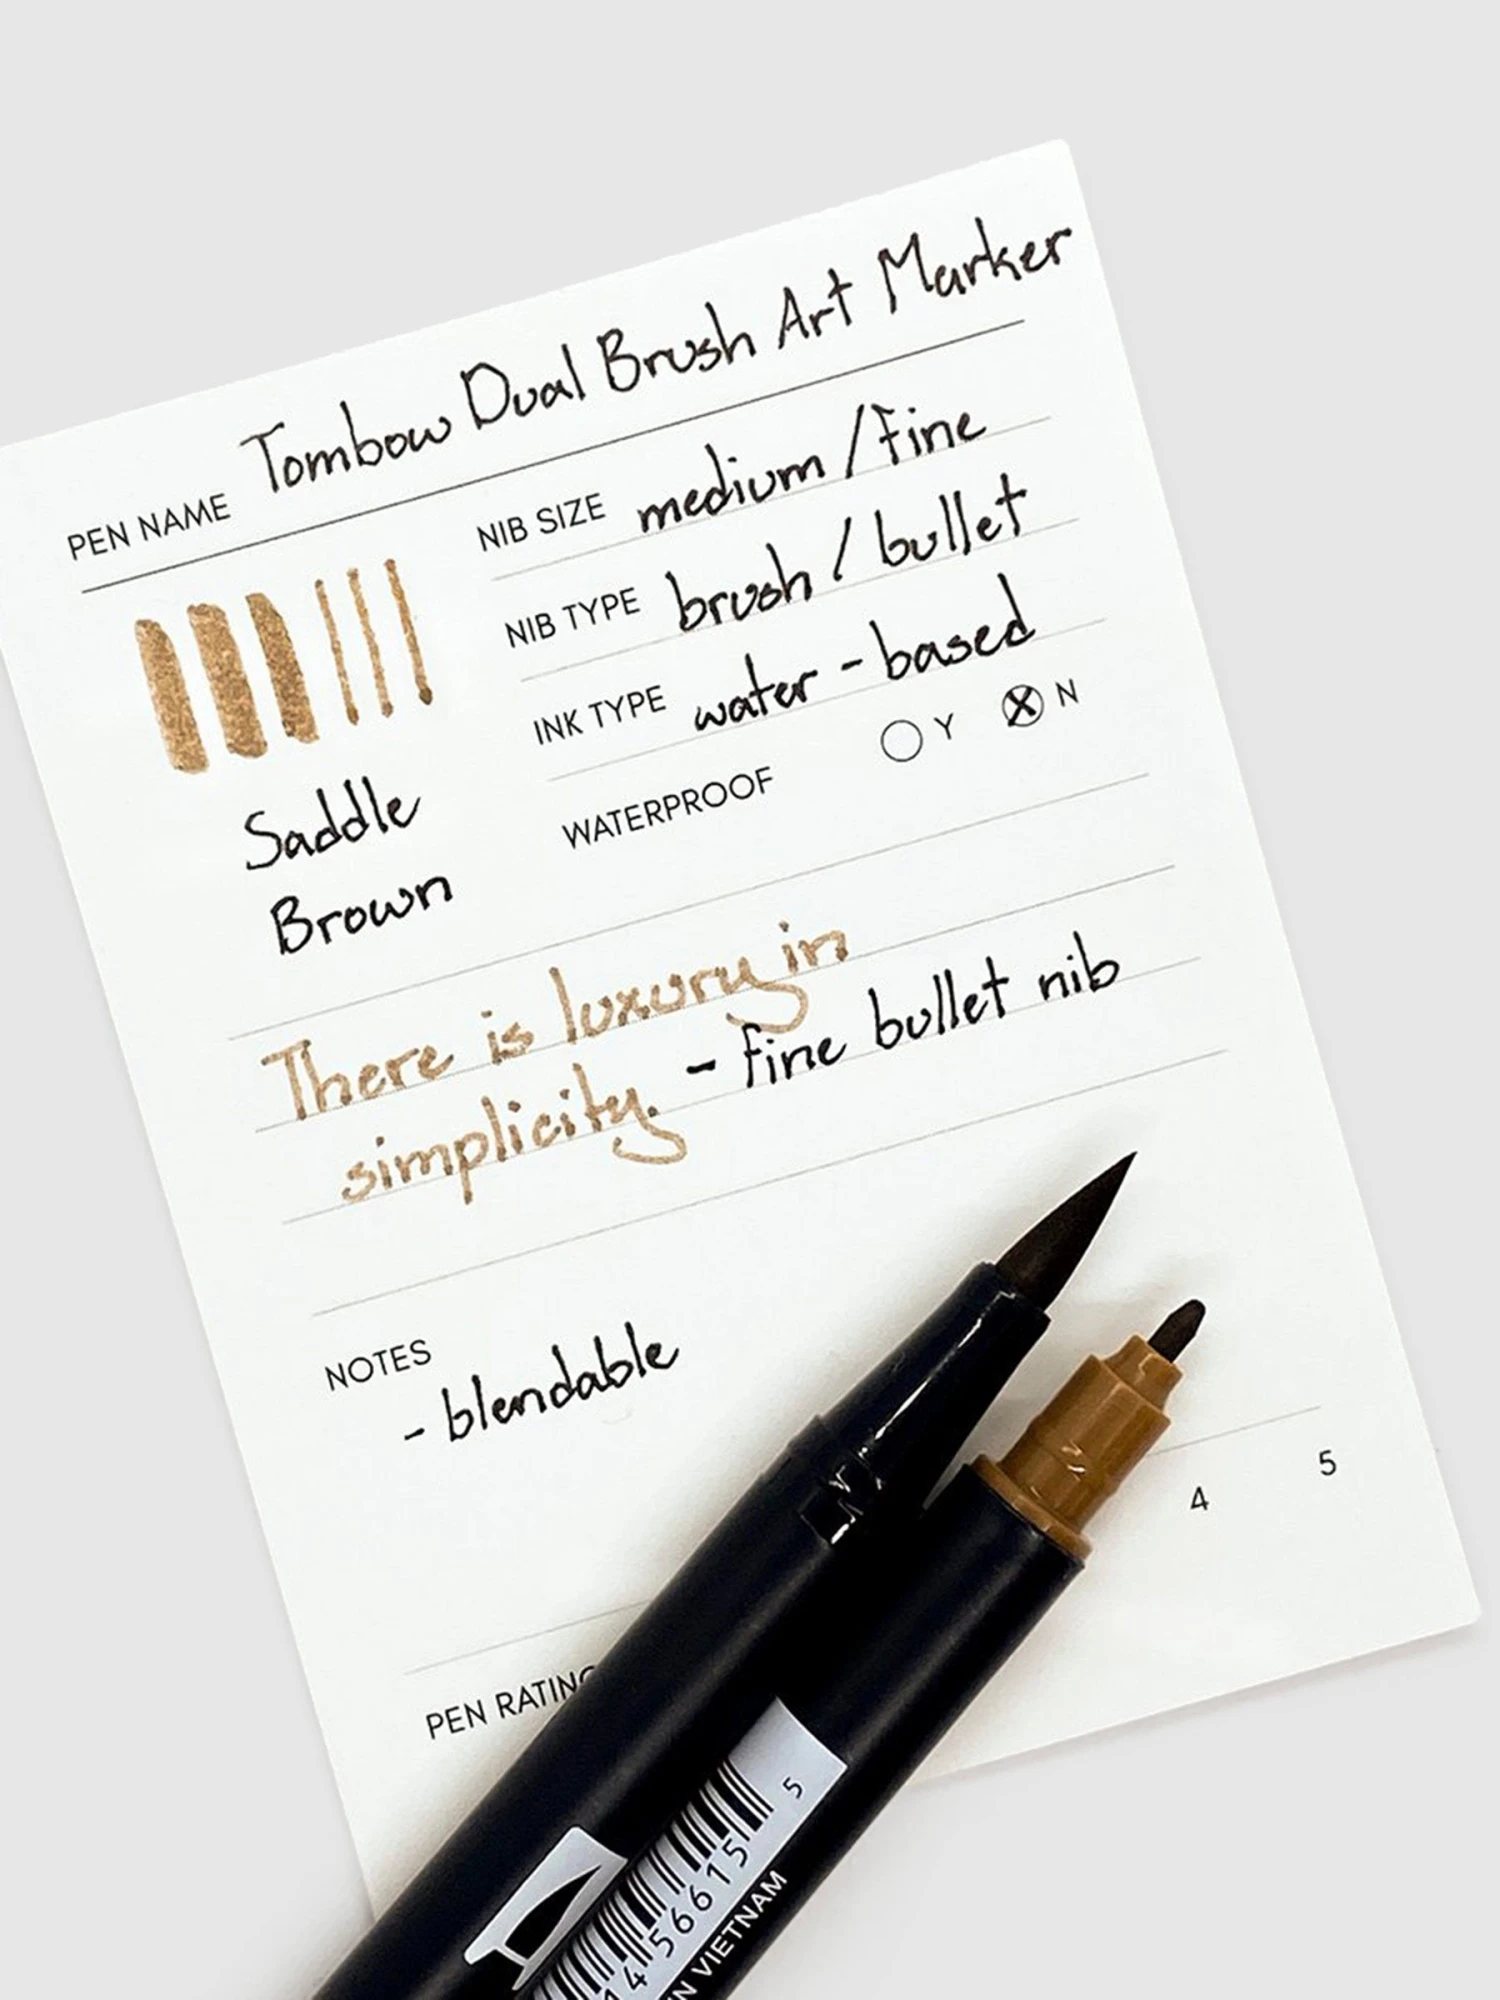 PEN NAME Tombow Dual Brush Art Marker
NIB SIZE medium / fine
NIB TYPE brush / bullet
INK TYPE water-based
WATERPROOF Y X N
Saddle
Brown
There is luxury in
simplicity. - fine bullet nib
NOTES
- blendable
PEN RATING 4 5
14 56615 5
IN VIETNAM